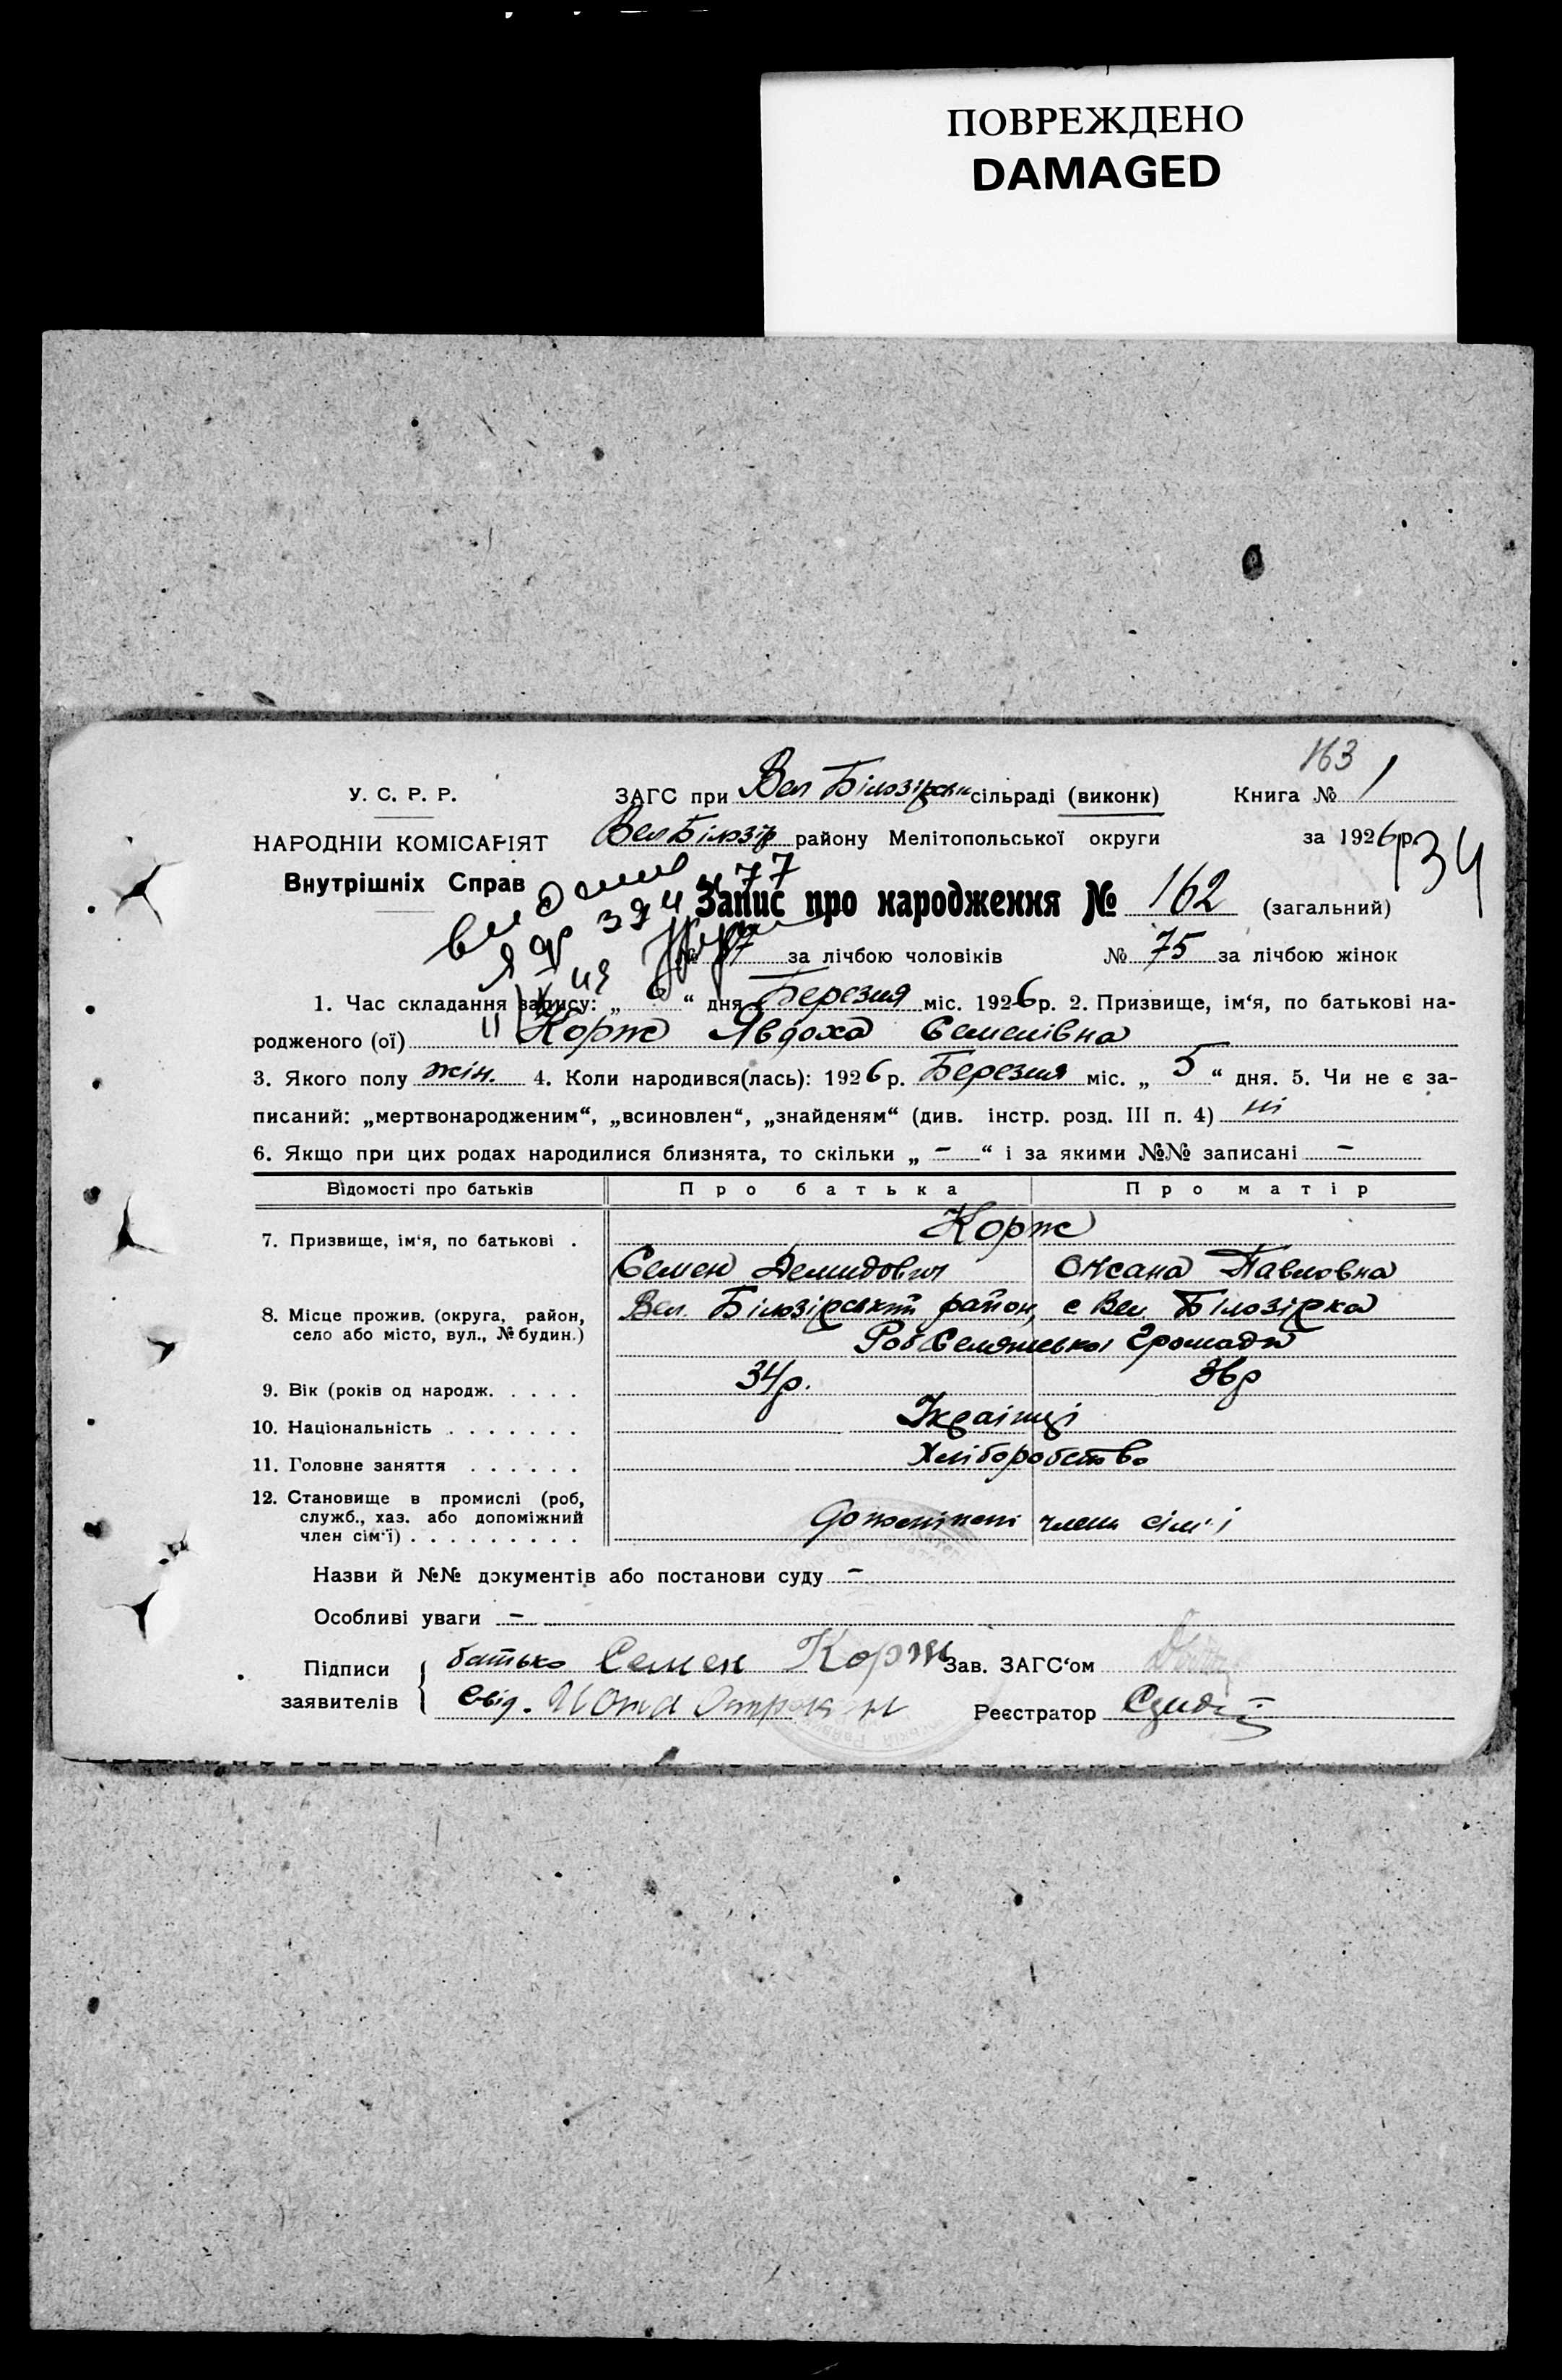 ПОВРЕЖДЕНО
DAMAGED
163
У. С. Р. Р.
ЗАГС при Вел Білозірськ сільраді (виконк)
Книга № 1
НАРОДНІЙ КОМІСАРІЯТ
Вел Білозір району Мелітопольської округи
за 1926 р.
134
Внутрішніх Справ
Запис про народження № 162 (загальний)
за лічбою чоловіків № 75 за лічбою жінок
1. Час складання запису: „ 6 “ дня Березня міс. 1926 р. 2. Призвище, ім‘я, по батькові на-
родженого (ої) Корж Явдоха Семенівна
3. Якого полу жін. 4. Коли народився(лась): 1926 р. Березня міс. „ 5 “ дня. 5. Чи не є за-
писаний: „мертвонародженим“, „всиновлен“, „знайденям“ (див. інстр. розд. III п. 4) ні
6. Якщо при цих родах народилися близнята, то скільки „ – “ і за якими №№ записані –
Відомості про батьків
Про батька
Про матір
7. Призвище, ім‘я, по батькові .
Корж
Семен Демидович
Оксана Павловна
8. Місце прожив. (округа, район,
село або місто, вул., № будин.)
Вел. Білозірський район, с Вел. Білозірка
Громади
9. Вік (років од народж. . . . .
34 р.
36 р
10. Національність . . . . . . .
Українці
11. Головне заняття . . . . . .
Хліборобство
12. Становище в промислі (роб,
служб., хаз. або допоміжний
член сім‘ї) . . . . . . . . .
допоміжні члени сім‘ї
Назви й №№ документів або постанови суду –
Особливі уваги –
Підписи
заявителів
батько Семен Корж
Зав. ЗАГС‘ом
свід.
Реєстратор